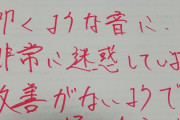 叩くような音に、
非常に迷惑していま
改善がないようで